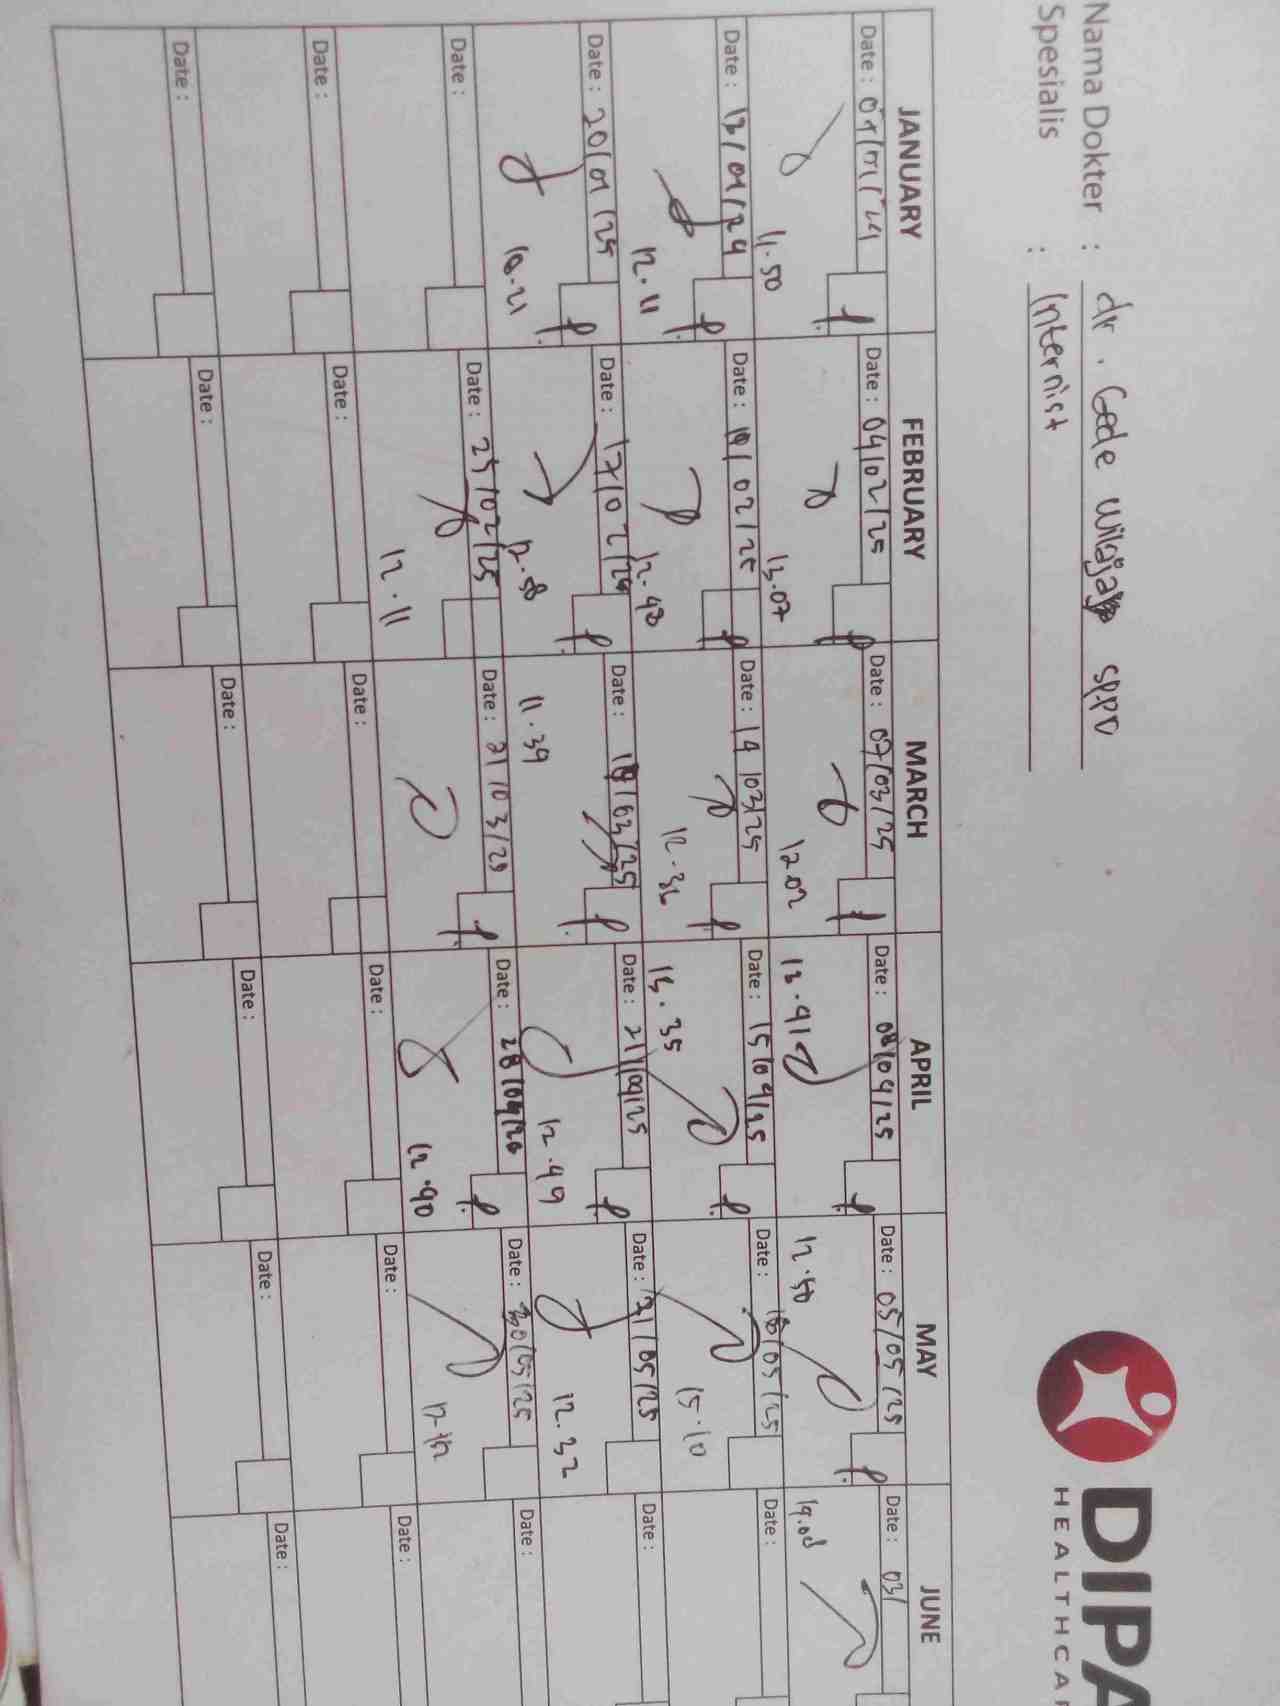 Nama Dokter : dr. Gede Wijaya SPPD
Spesialis : Internist
DIPA
HEALTHCAR
JANUARY FEBRUARY MARCH APRIL MAY JUNE
Date : Date : 04/02/25 Date : 07/03/25 Date : 08/04/25 Date : 05/05/25 Date : 03/
11.50 13.07 12.02 13.41 12.50 14.08
Date : 13/01/24 Date : 10/02/25 Date : 14/03/25 Date : 15/04/25 Date : /05/25 Date :
12.11 12.48 12.32 13.35 15.10
Date : 20/01/25 Date : 17/02/25 Date : 18/03/25 Date : 21/04/25 Date : 21/05/25 Date :
10.21 12.58 11.39 12.49 12.32
Date : Date : 25/02/25 Date : 21/03/25 Date : 28/04/25 Date : 30/05/25 Date :
12.11 12.40 12.12
Date : Date : Date : Date : Date : Date :
Date : Date : Date : Date : Date : Date :